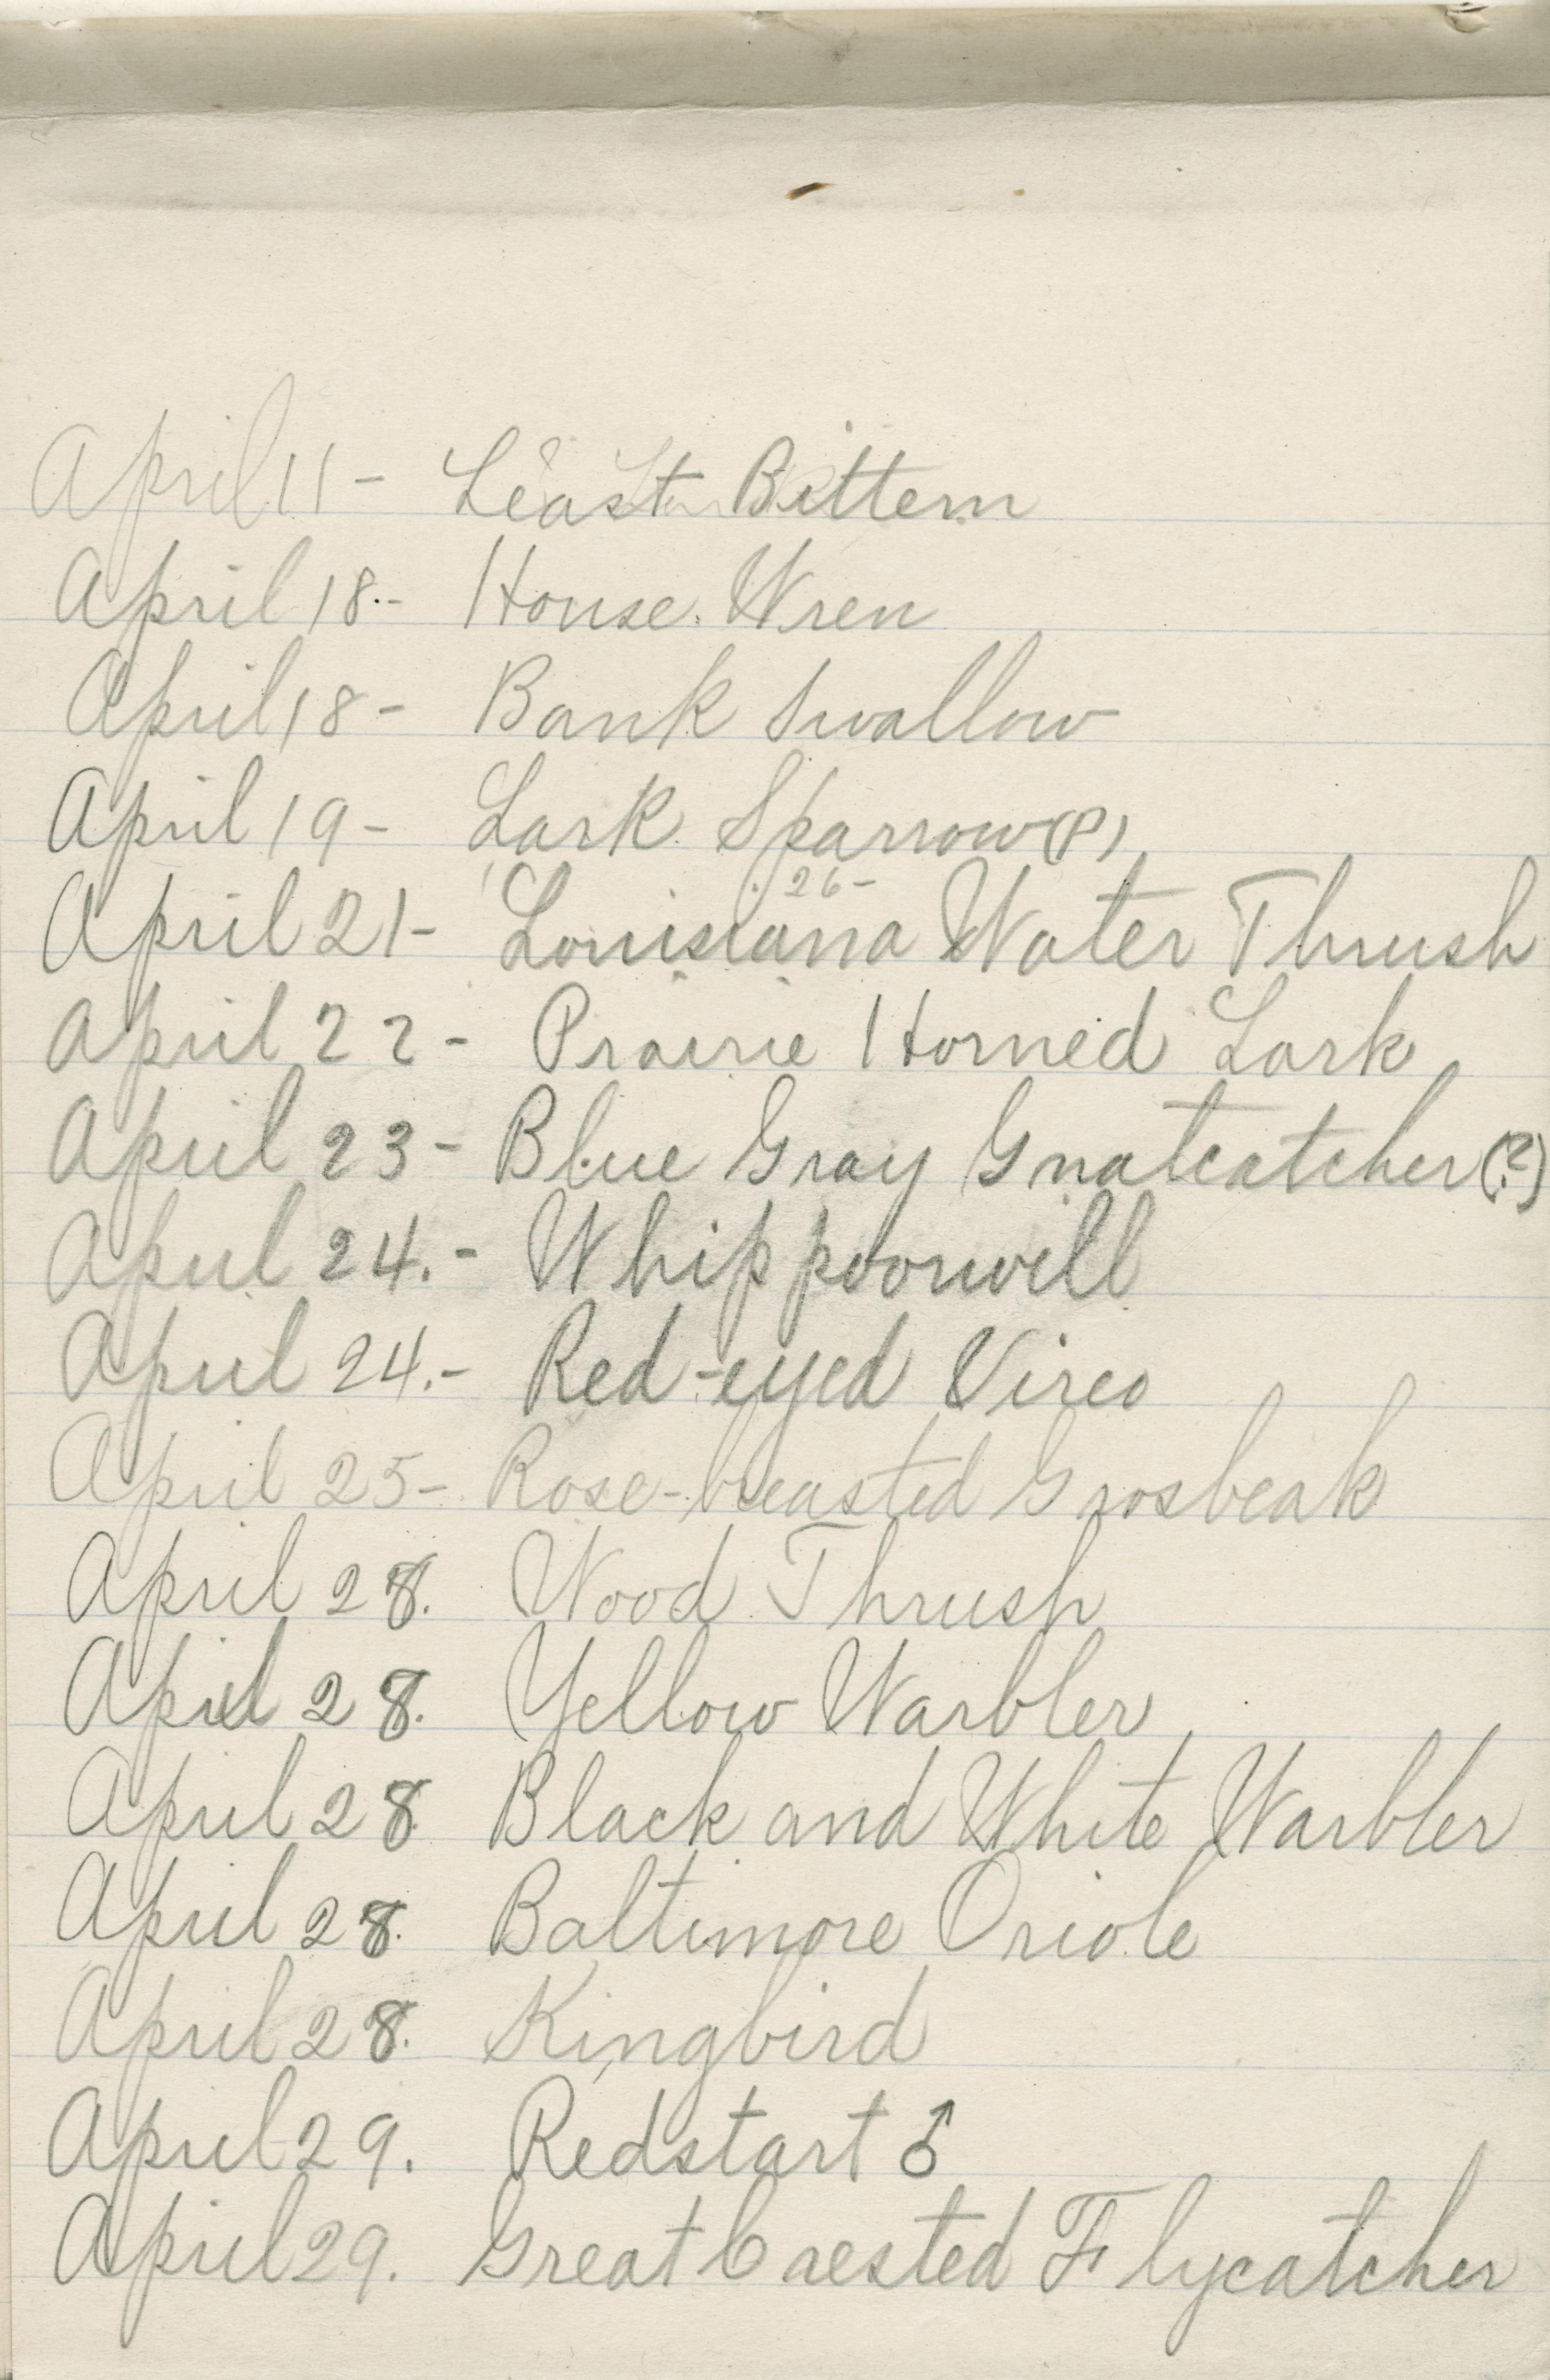 April 11 - Least Bittern
April 18. - House Wren
April 18 - Bank Swallow
April 19 - Lark Sparrow (?)
26 -
April 21 - Louisiana Water Thrush
April 22 - Prairie Horned Lark
April 23 - Blue Gray Gnatcatcher (?)
April 24. - Whippoorwill
April 24. - Red-eyed Vireo
April 25 - Rose-breasted Grosbeak
April 28. Wood Thrush
April 28. Yellow Warbler
April 28 Black and White Warbler
April 28. Baltimore Oriole
April 28. Kingbird
April 29. Redstart ♂
April 29. Great Crested Flycatcher